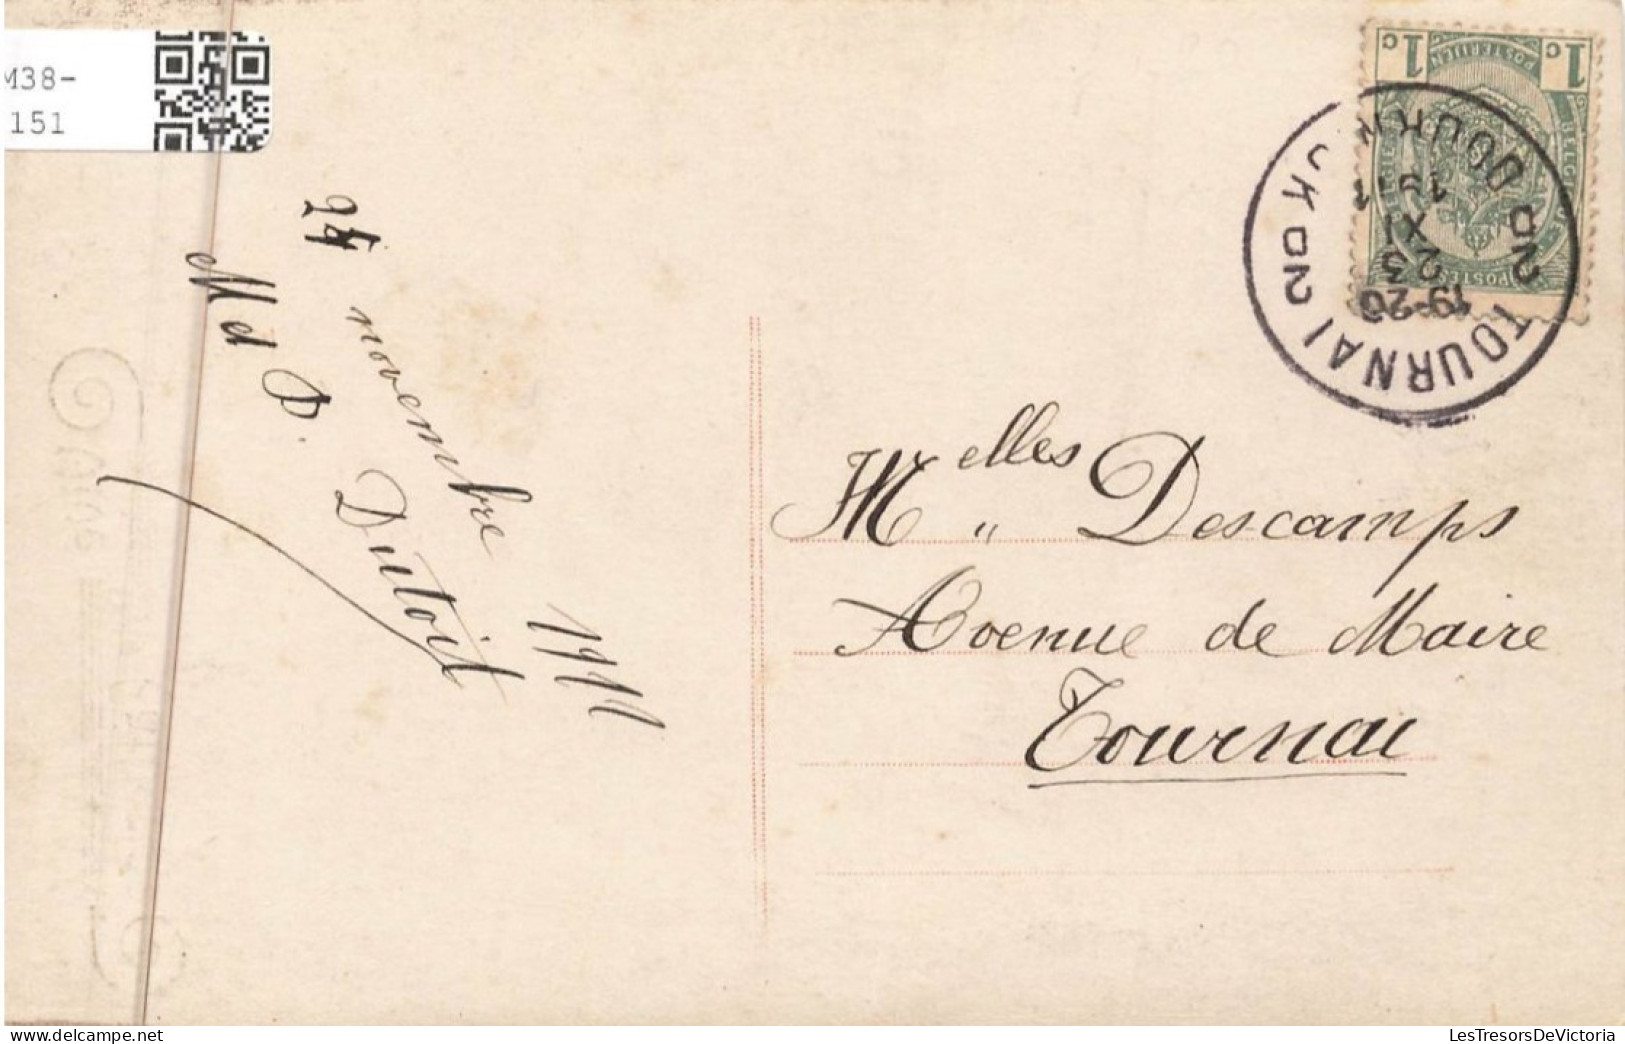 M38-
151
24 novembre 1911
Md P. Dutoit
1c 1c
POSTERIJEN
POSTES
TOURNAI
DOORNIK
19-20
23
XI
1911
Melles " Descamps
Avenue de Maire
Tournai
LesTresorsDeVictoria